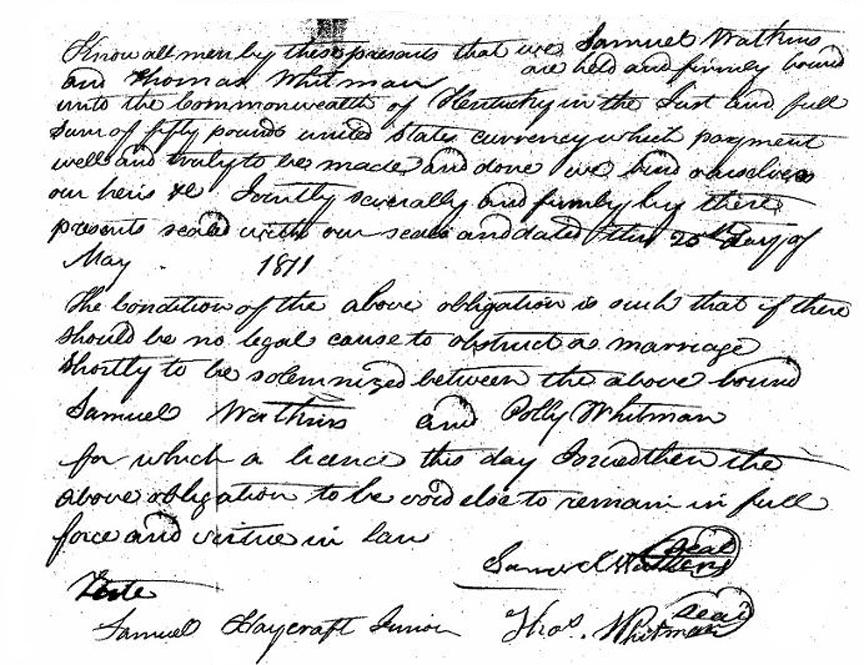 Know all men by these presents that we Samuel Watkins
and Thomas Whitman are held and firmly bound
unto the Commonwealth of Kentucky in the Just and full
Sum of fifty pounds united States currency which payment
well and truly to be made and done we bind ourselves
our heirs &c Jointly severally and firmly by these
presents sealed with our seals and dated this 25th day of
May 1811
The Condition of the above obligation is such that if there
should be no legal cause to obstruct a marriage
Shortly to be solemnized between the above bound
Samuel Watkins and Polly Whitman
for which a licence this day Issued then the
above obligation to be void else to remain in full
force and virtue in law
Samuel Watkins Seal
Teste
Samuel Haycraft Junior Thos. Whitman Seal